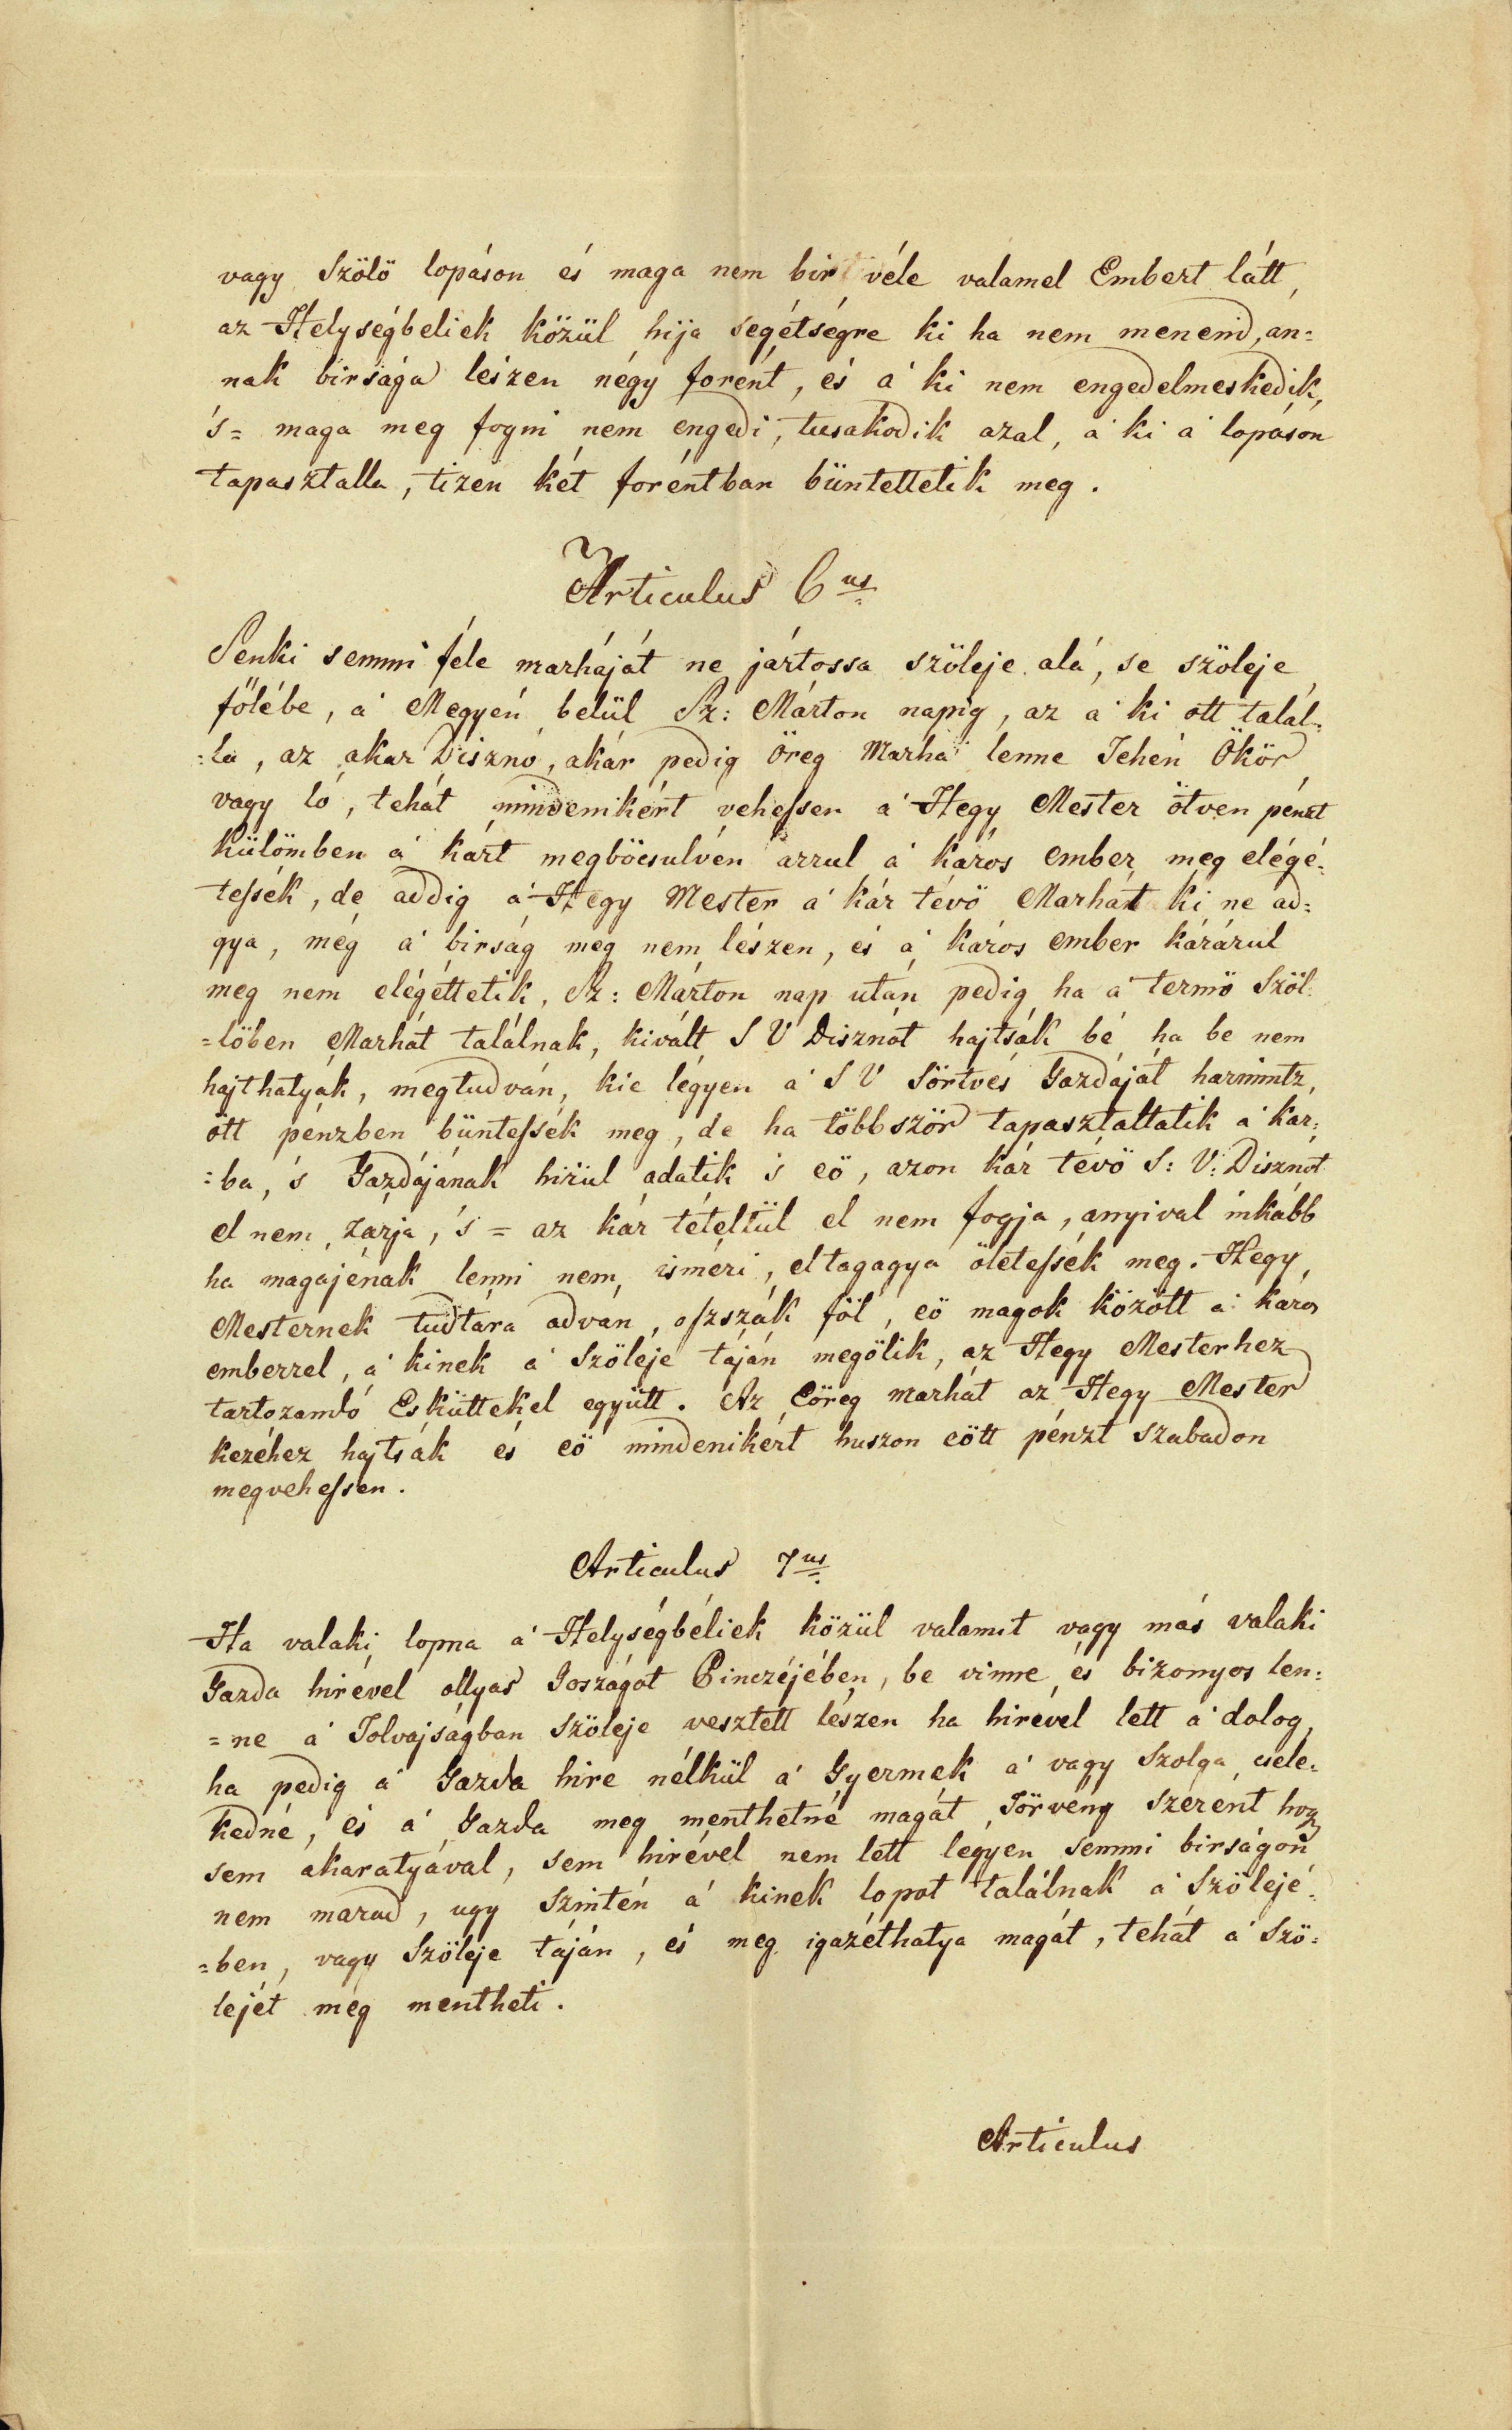 vagy Szölö lopáson és maga nem bir véle valamel Embert látt,
az Helységbeliek közül hija segétségre ki ha nem menend, an=
nak birsága lészen négy forént, és a' ki nem engedelmeskedik,
's= maga meg fogni nem engedi, tusakodik azal, a' ki a' lopáson
tapasztalla, tizen két foréntban büntettetik meg.
Articulus 6us
Senki semmi féle marháját ne jártossa szöleje alá, se szöleje
fölébe, a' Megyén belül Sz: Márton napig, az a' ki ott talál=
:la, az akar Disznó, akár pedig Öreg Marha lenne Tehén Ökör
vagy ló, tehát mindenikért vehessen a' Hegy Mester ötven pénzt
külömben a' kárt megböcsulvén arrul a' káros ember meg elégé=
tessék, de addig a' Hegy Mester a' kár tévö Marhát ki ne ad=
gya, még a' birság meg nem lészen, és a' káros ember kárárul
meg nem elégéttetik, Sz: Márton nap után pedig ha a' termö Szöl=
=löben Marhát találnak, kivált S V Disznót hajtsák bé ha be nem
hajthatyák, megtudván, kie légyen a' S V Sörtvés Gazdáját harmintz,
ött pénzben büntessék meg, de ha többször tapasztaltatik a' kár=
:ba, 's Gazdájának hirül adatik 's eö, azon kár tévö S: V: Disznót
el nem zárja, 's = az kár tételtül el nem fogja, anyival inkább
ha magajénak lenni nem isméri, eltagagya öletessék meg. Hegy
Mesternek tudtára adván, oszszák föl, eö magok között a' káros
emberrel, a' kinek a' Szöleje táján megölik, az Hegy Mesterhez
tartozandó Esküttekel együtt. Az Eöreg marhát az Hegy Mester
kezéhez hajtsák és eö mindenikért huszon eött pénzt szabadon
megvehessen.
Articulus 7us
Ha valaki lopna a' Helységbéliek közül valamit vagy más valaki
Gazda hirével ollyas Joszágot Pinczéjében, be vinne és bizonyos len=
=ne a' Tolvajságban Szöleje vesztett lészen ha hirével lett a' dolog,
ha pedig a' Gazda hire nélkül a' Gyermek a' vagy Szolga csele=
kedné, és a' Gazda meg menthetné magát Törvény Szerént hogy
sem akaratyával, sem hirével nem lett légyen semmi birságon
nem marad, ugy Szintén a' kinek lopot találnak a' Szölejé=
=ben, vagy Szöleje táján, és meg igazéthatya magát, tehát a' Szö=
lejét meg mentheti.
Articulus